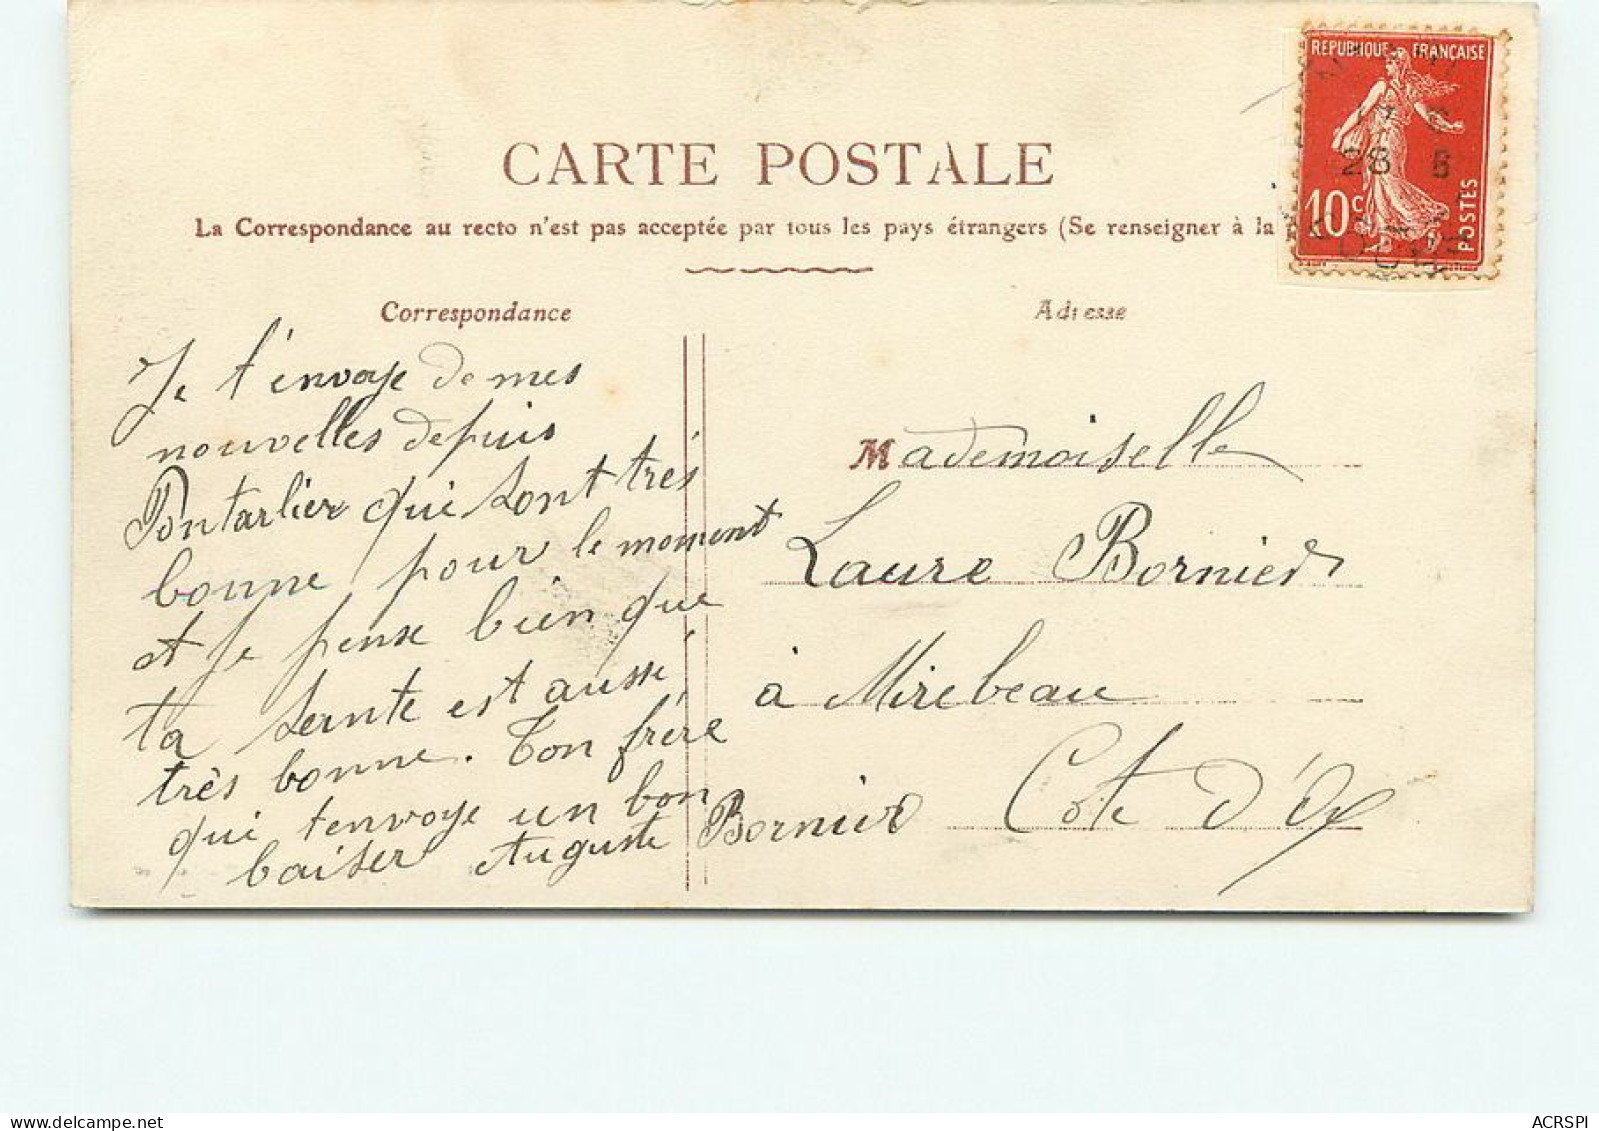 CARTE POSTALE
La Correspondance au recto n'est pas acceptée par tous les pays étrangers (Se renseigner à la
REPUBLIQUE FRANÇAISE
28 8
10 c
POSTES
Correspondance
Je t'envoye de mes
nouvelles depuis
Pontarlier qui sont très
bonne pour le moment
et je pense bien que
ta sernte est aussi
très bonne. Ton frère
qui t'envoye un bon
baiser Auguste Bornier
Adresse
Mademoiselle
Laure Bornier
à Mirebeau
Cote d'Or
ACRSPI